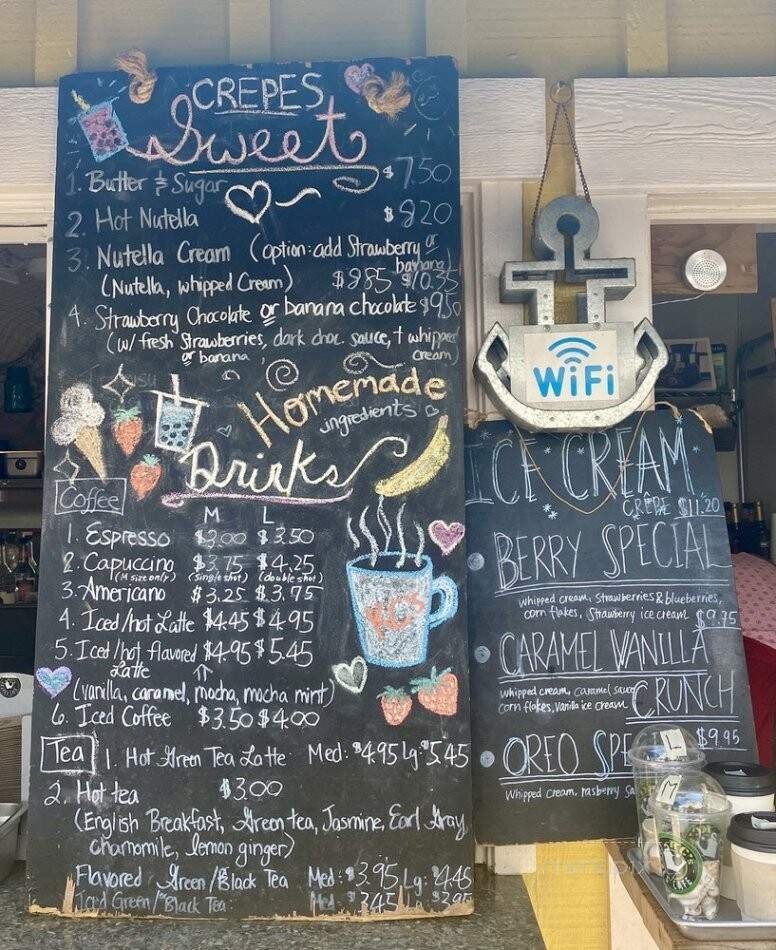 CREPES
Sweet
1. Butter & Sugar $7.50
2. Hot Nutella $820
3. Nutella Cream (option: add Strawberry or banana)
(Nutella, whipped Cream) $885 $10.35
4. Strawberry Chocolate or banana chocolate $950
(w/ fresh Strawberries, dark choc sauce, + whipped
or banana cream)
Homemade
ingredients
Drinks
Coffee M L
1. Espresso $3.00 $3.50
2. Capuccino $3.75 $4.25
(M size only) (single shot) (double shot)
3. Americano $3.25 $3.75
4. Iced/hot Latte $4.45 $4.95
5. Iced/hot flavored $4.95 $5.45
Latte
(vanilla, caramel, mocha, mocha mint)
6. Iced Coffee $3.50 $4.00
Tea 1. Hot Green Tea Latte Med: $4.95 Lg: $5.45
2. Hot tea $3.00
(English Breakfast, Green tea, Jasmine, Earl Gray,
chamomile, lemon ginger)
Flavored Green/Black Tea Med: $3.95 Lg: $4.45
Iced Green/Black Tea Med: $3.45 L: $3.95
WiFi
ICE CREAM
CREPE $11.20
BERRY SPECIAL
whipped cream, Strawberries & blueberries,
corn flakes, Strawberry ice cream $9.75
CARAMEL VANILLA
whipped cream, caramel sauce
CRUNCH
corn flakes, Vanilla ice cream
$9.95
OREO SPE
Whipped cream, rasberry sa
L
M